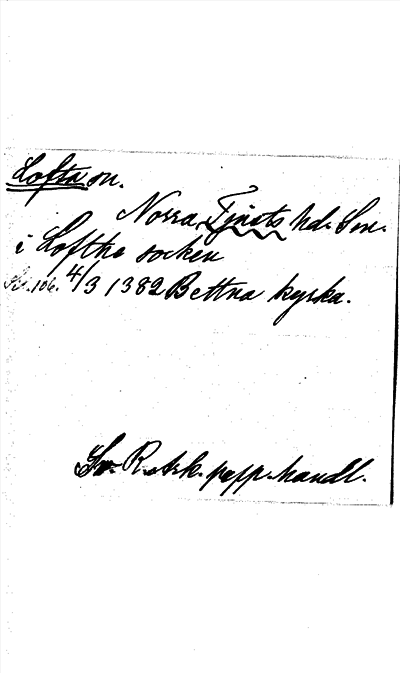 Lofta sn.
Norra Tjusts hd. Sm.
i Loftha socken
Nr. 106. 4/3 1382 Bettna kyrka.
Sv. R. Ark. papp. handl.